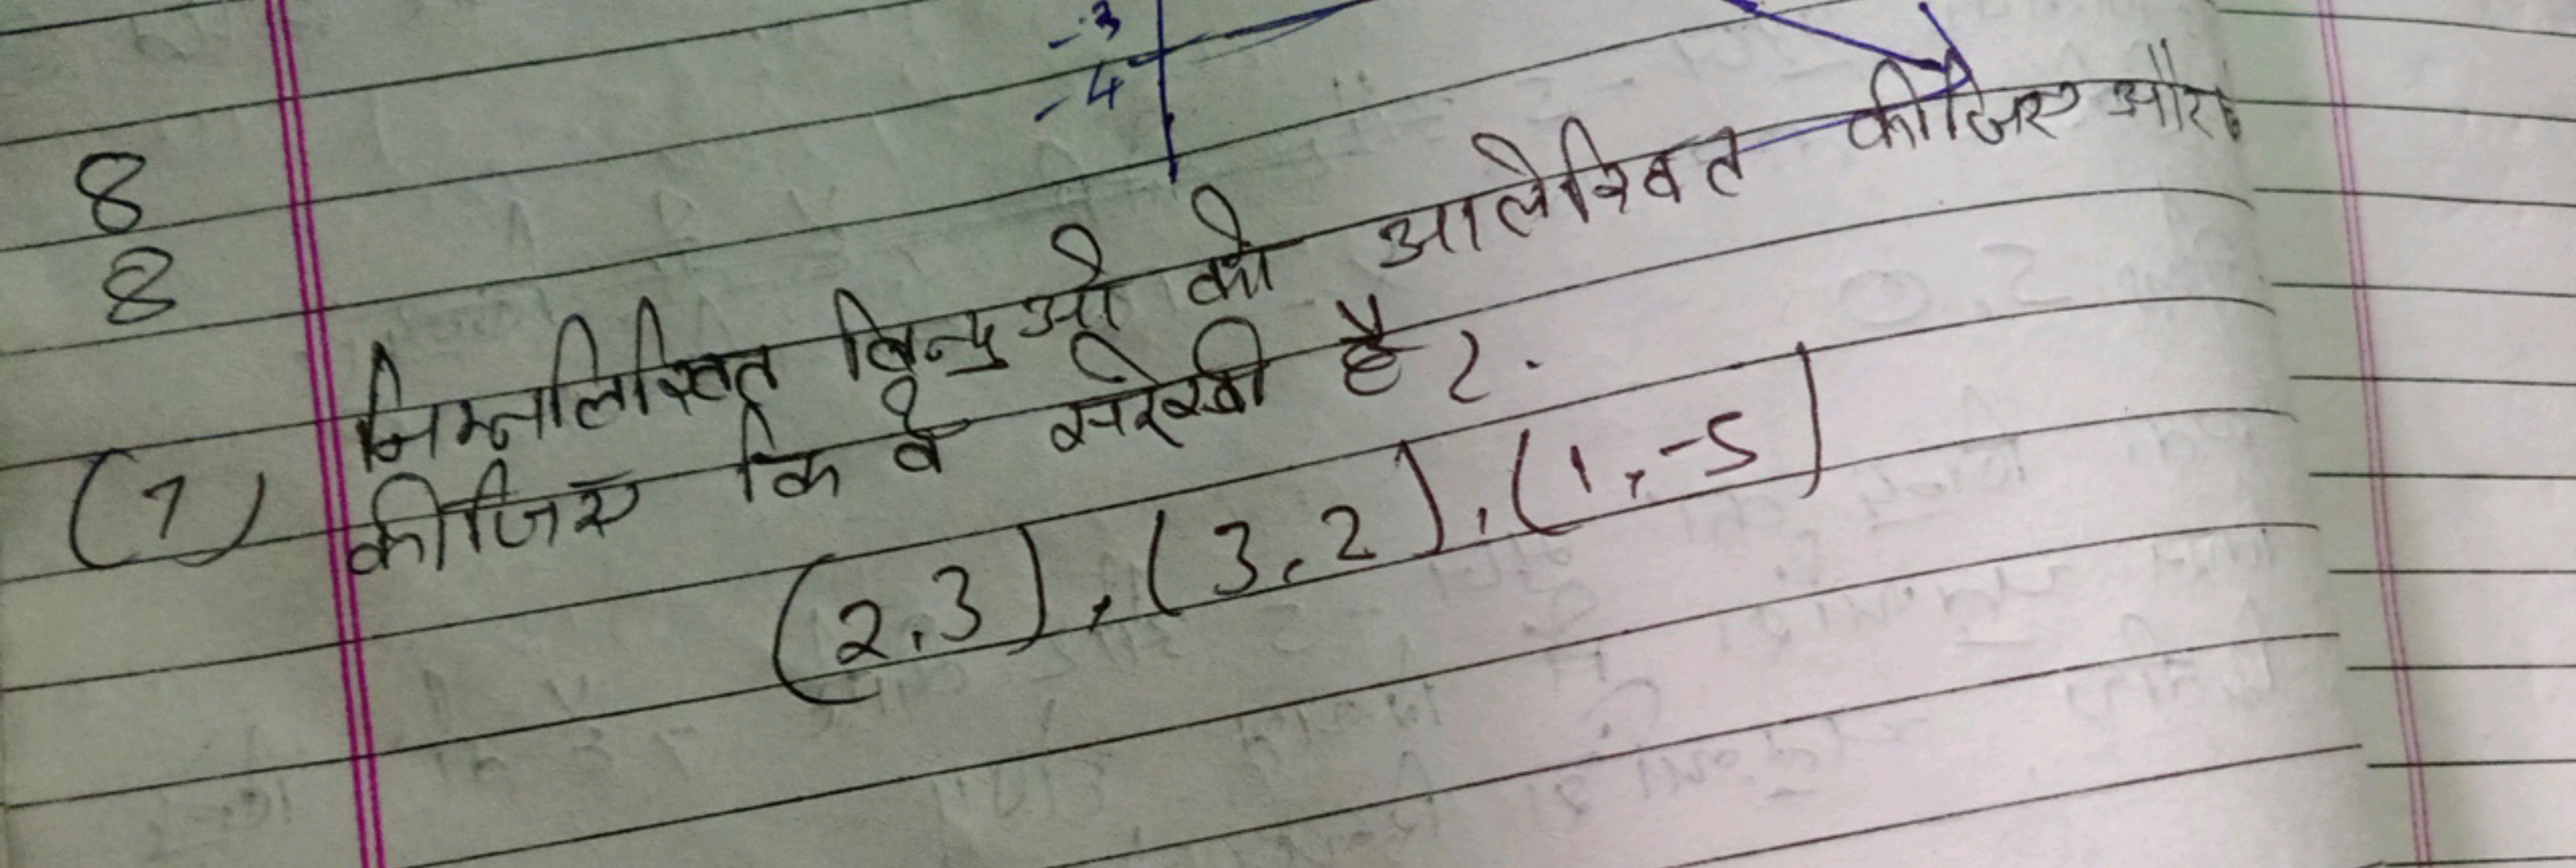 -3
-4
8
8
(7) निम्नलिखित बिन्दुओ को आलेखित कीजिए और
कीजिए कि वे सरेखी है?.
(2,3), (3,2), (1,-5)